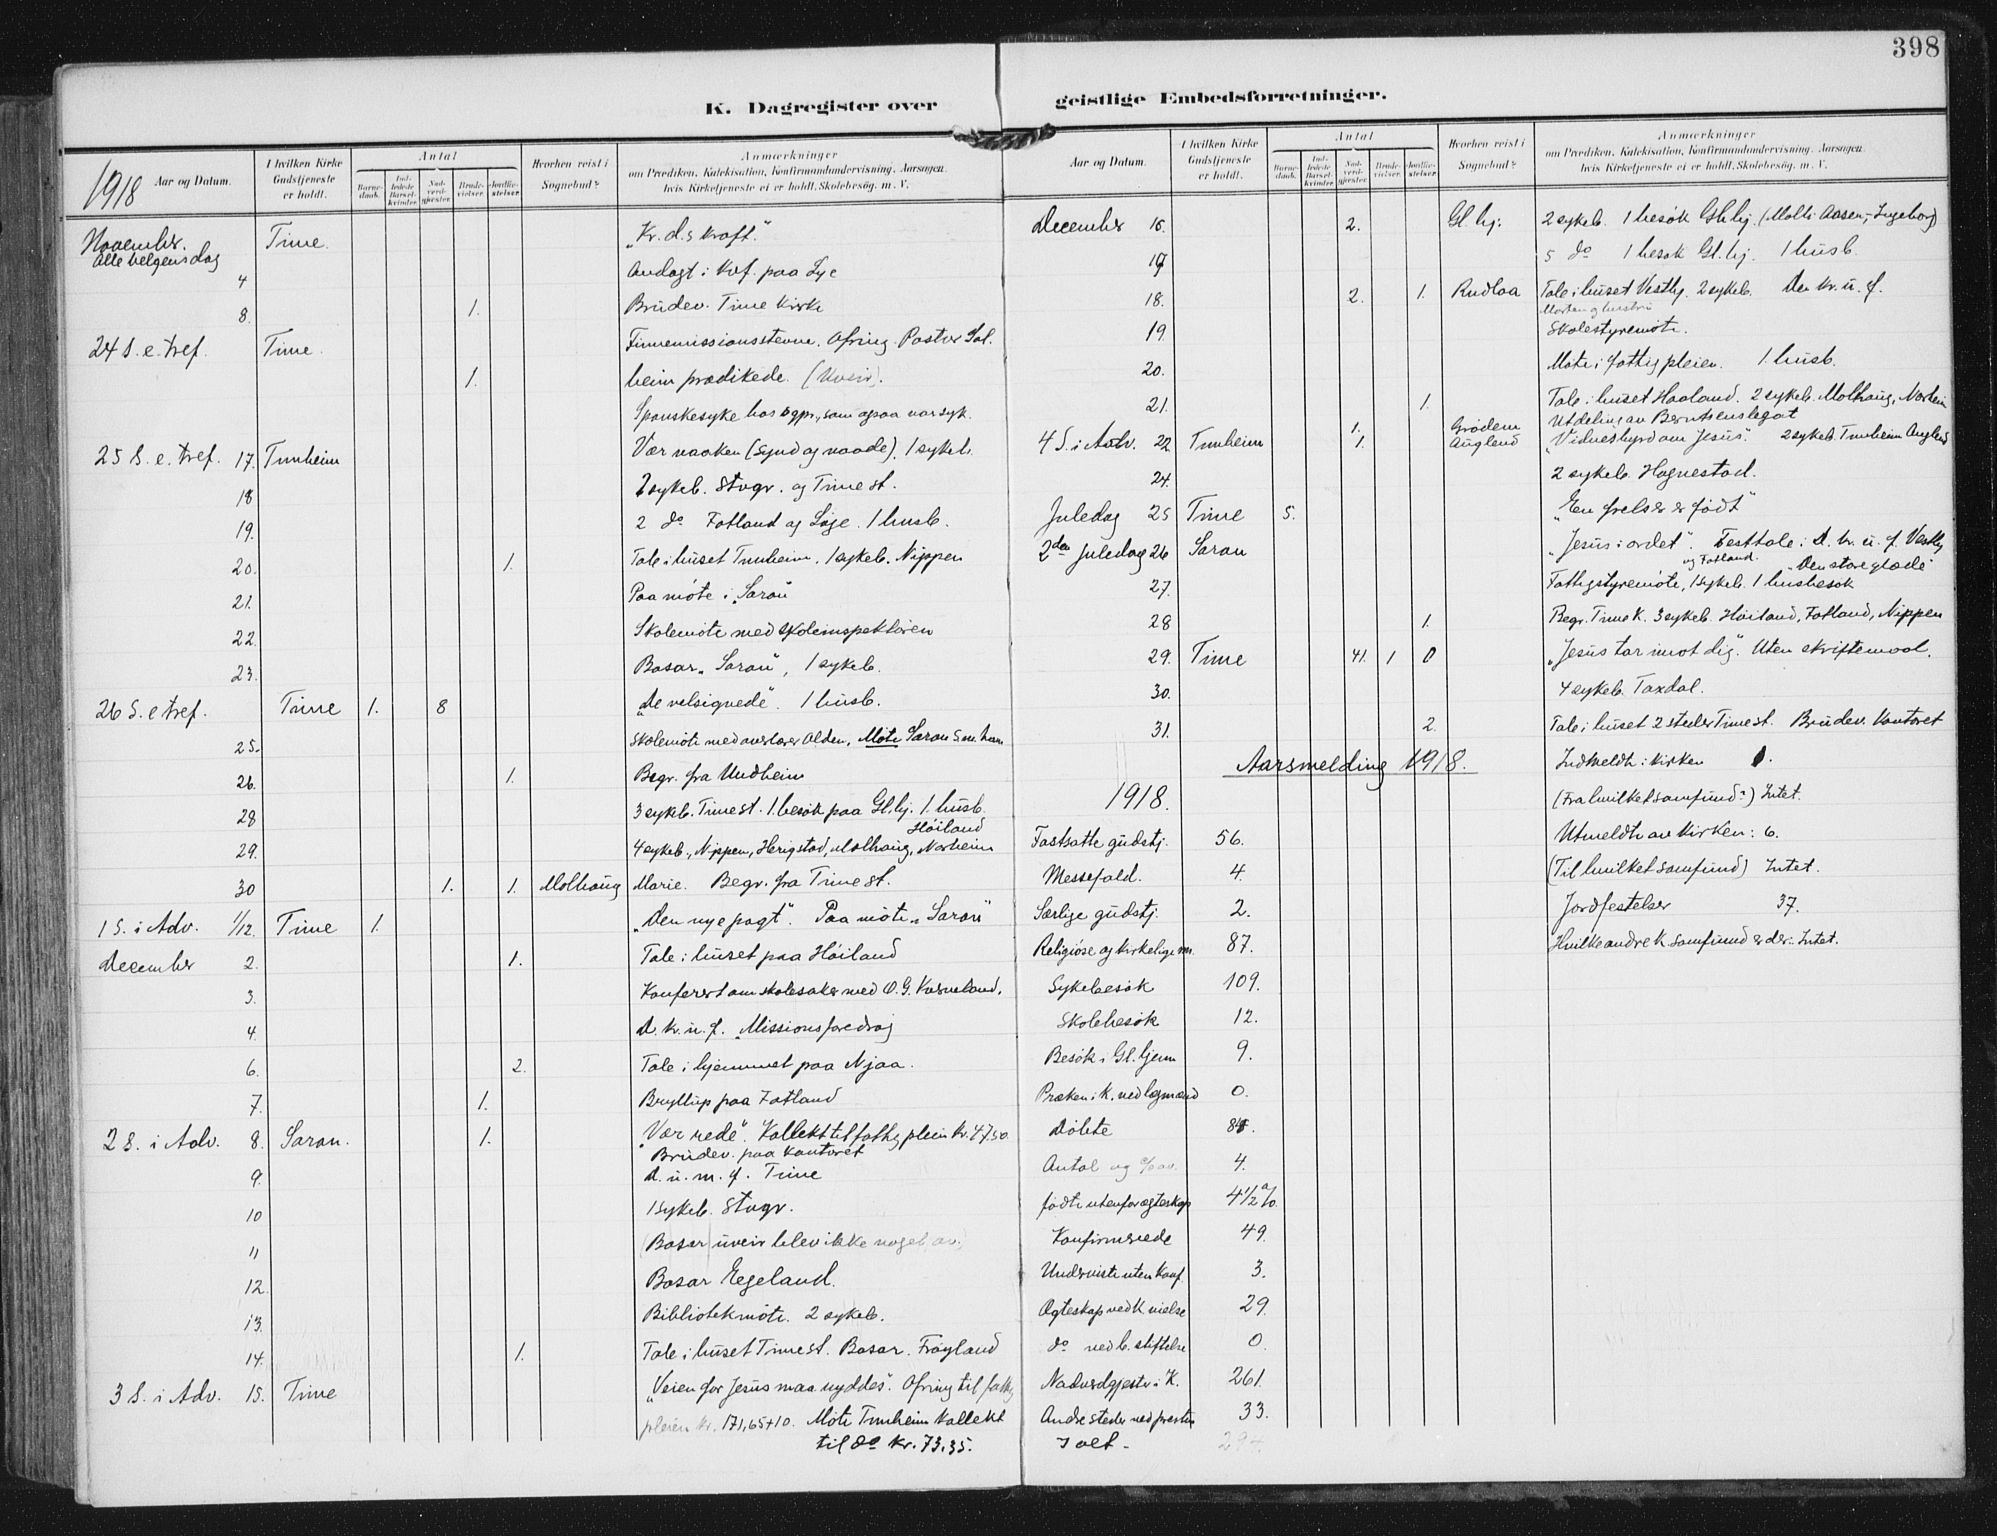 398
K. Dagregister over geistlige Embedsforretninger.
1918
Aar og Datum.
I hvilken Kirke Gudstjeneste er holdt.
Antal
Barnedaab.
Indledede Barselkvinder.
Nadverdgjester
Brudevielser
Jordfæstelser
Hvorhen reist i Sognebud?
Anmærkninger
om Prædiken, Katekisation, Konfirmandundervisning. Aarsagen,
hvis Kirketjeneste ei er holdt. Skolebesøg. m. V.
November. Time. „Kr. d.s kraft."
Alle helgensdag
4 Andagt i Kvf. paa Lye
8. 1. Brudev. Time Kirke
24 S. e. tref. Time. Finnemissionsstevne. Ofring. Pastor Sol.
1. heim prædikede. (Uveir).
Spanskesyke hos sgpr., som ogsaa var syk.
25 S. e. tref. 17. Tunheim Vær vaaken (Synd og naade). 1 sykeb.
18 2 sykeb. Stvgr. og Time st.
19. 2 do Fotland og Lye. 1 husb.
20. 1. Tale i huset Tunheim. 1 sykeb. Nippen
21. Paa møte i „Saron"
22. Skolemøte med skoleinspektøren
23. Basar „Saron", 1 sykeb.
26 S. e tref. Time 1. 8 „De velsignede". 1 husb.
25. Skolemøte med overlærer Olden. Møte Saron S.m.
26. 1. Begr. fra Undheim
28 3 sykeb. Time st. 1. besøk paa Gl.hj. 1. husb.
29. 4 sykeb., Nippen, Herigstad, Molhaug, Norheim Høiland
30 1. 1. Molhaug Marie. Begr. fra Time st.
1 S. i Adv. 1/12. Time 1. „Den nye pagt". Paa møte „Saron"
December 2. 1. Tale i huset paa Høiland
3. Konferert om skolesaker med O. G. Kverneland.
4. D. k. u. f. Missionsforedrag
6. 2. Tale i hjemmet paa Njaa.
7. 1. Bryllup paa Fotland
2 S. i Adv. 8. Saron. 1. „Vær rede". Kollekt til fattigpleien kr. 47.50.
Brudev. paa kontoret
9. D. u. m. f. Time
10 1 sykeb. Stvgr.
11 (Basar) uveir blev ikke noget av.)
12. Basar Egeland.
13. Bibliotekmøte. 2 sykeb.
14. 1. Tale i huset Time st. Basar. Frøyland
3 S. i Adv. 15. Time „Veien for Jesus maa ryddes". Ofring til fattig
pleien kr. 171,65+10. Møte Tunheim Kollekt
til do kr. 73.35.
Aar og Datum.
I hvilken Kirke Gudstjeneste er holdt.
Antal
Barnedaab.
Indledede Barselkvinder
Nadverdgjester
Brudevielser
Jordfæstelser
Hvorhen reist i Sognebud?
Anmærkninger
om Prædiken, Katekisation, Konfirmandundervisning. Aarsagen
hvis Kirketjeneste ei er holdt. Skolebesøg. m. V.
December 16. 2. Gl. hj. 2 sykeb. 1 besøk Gl.hj. (Molli Aasen, Ingeborg)
17 5 do 1 besøk Gl. hj. 1 husb.
18. 2. 1. Rudlaa Tale i huset Vestly. 2 sykeb. Den kr. u. f.
Morten og hustru
19. Skolestyremøte.
20. Møte i fattigpleien. 1. husb.
21. 1. Tale i huset Haaland. 2 sykeb. Molhaug, Norheim
1. Grødem Utdeling av Berntsens legat
4 S. i Adv. 22. Tunheim 1. Augland „Vidnesbyrd om Jesus". 2 sykeb. Tunheim Augland
24. 2 sykeb. Hognestad.
Juledag 25 Time 5. „En frelser er født"
2den juledag 26 Saron „Jesus i ordet". Festtale i D. kr. u. f. Vestly
og Fotland. „Den store glæde"
27. Fattigstyremøte, 1 sykeb. 1 husbesøk
28 1. Begr. Time K. 3 sykeb. Høiland, Fotland, Nippen
29. Time 41. 1 0 „Jesus tar imot dig". Uten skriftemaal.
30. 4 sykeb. Taxdal.
31. 2. Tale i huset 2 steder Time st. Brudev. Kontoret
Aarsmelding 1918. Indmeldte i kirken 0.
1918. (Fra hvilket samfund?) Intet.
Fastsatte gudstj. 56. Utmeldte av kirken: 6.
Messefald. 4. (Til hvilket samfund) Intet.
Særlige gudstj. 2. Jordfestelser 37.
Religiøse og kirkelige m. 87. Hvilke andre k samfund er der: Intet.
Sykebesøk 109.
Skolebesøk 12.
Besøk i Gl. hjem 9.
Præken i K. ved lægmænd 0.
Døbte
Antal og % av. 4.
fødte utenfor egteskap 4 1/2 %.
Konfirmerede 49.
Underviste uten konf. 3.
Ægteskap ved k vielse 29.
do ved b. stiftelse 0.
Nadverdgjester i K. 261.
Andre steder ved presten 33.
Ialt. 294.